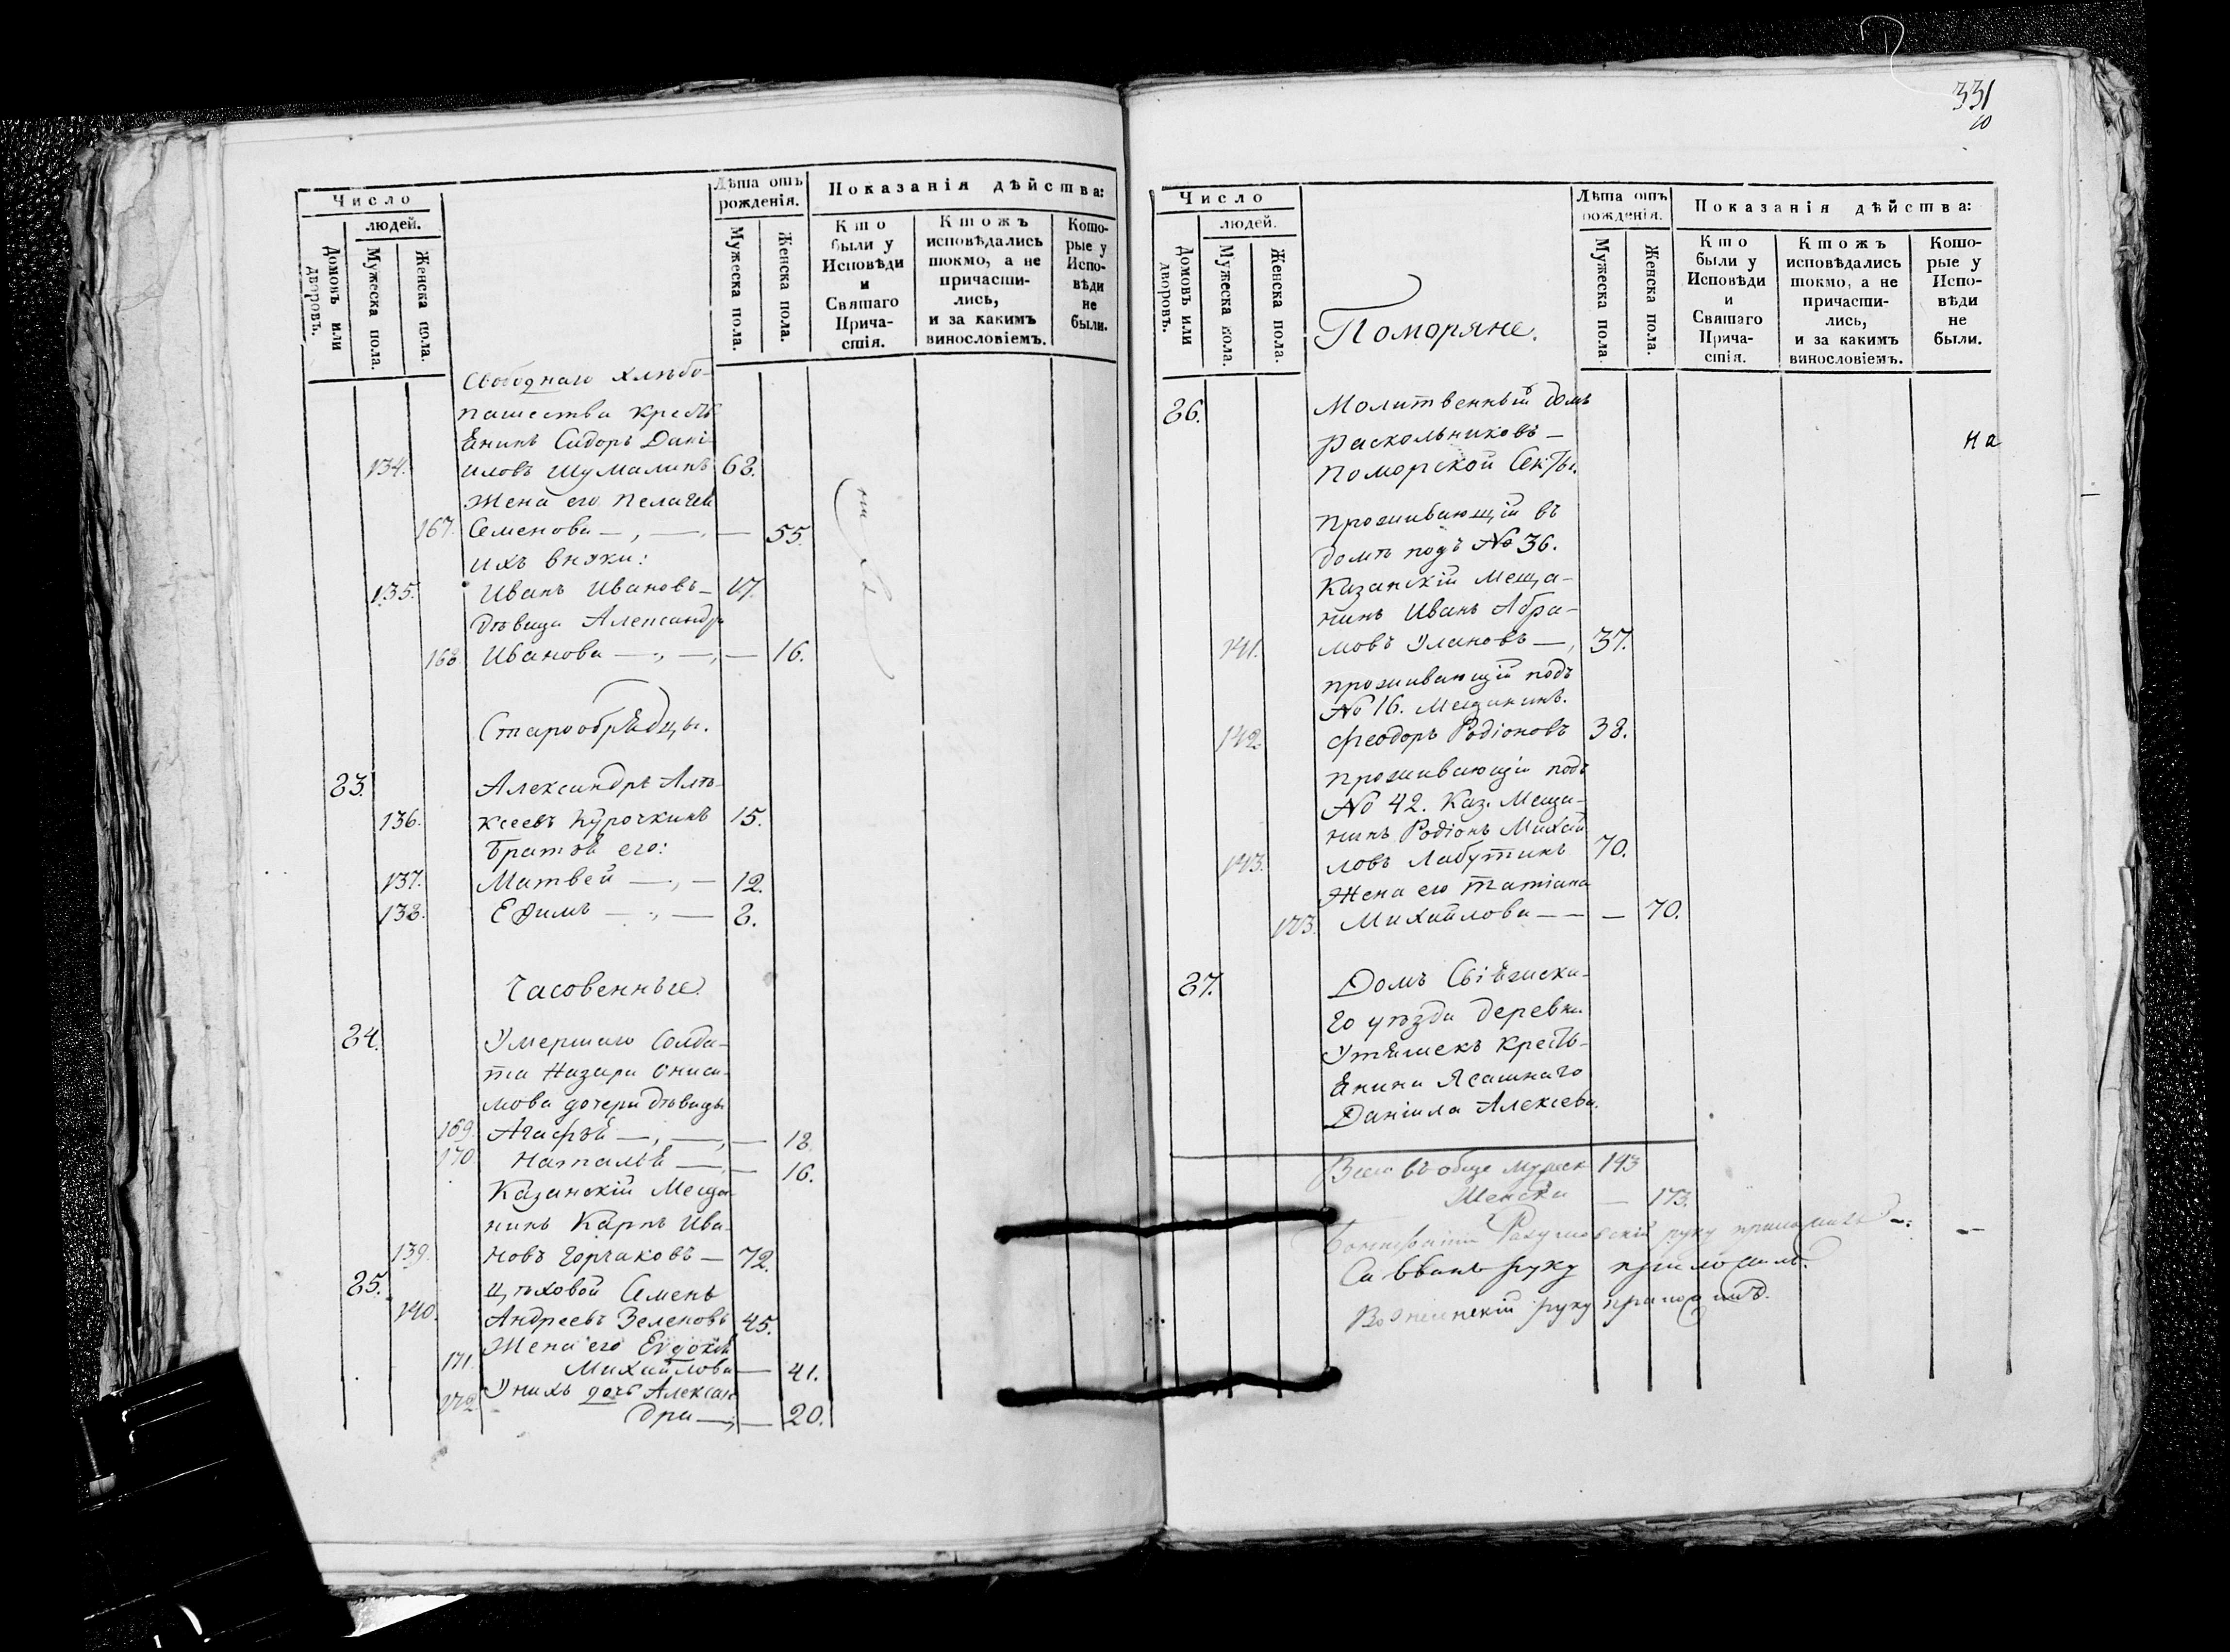 331
10
Число
людей.
Домовъ или дворовъ.
Мужеска пола.
Женска пола.
Лѣта отъ рожденія.
Мужеска пола.
Женска пола.
Показанія дѣйства:
Кто были у Исповѣди и Святаго Прича-стія.
Ктожъ исповѣдались токмо, а не причасти-лись, и за какимъ винословіемъ.
Кото-рые у Испо-вѣди не были.
Свободнаго хлѣбо-
пашества кресть
янинъ Сидоръ Дані
134. иловъ Шумилинъ 68.
Жена его Пелагея
167. Семенова — 55.
ихъ внуки:
135. Иванъ Ивановъ — 17.
дѣвица Александра
168. Иванова — 16.
Старообрядцы.
83. Александръ Алѣ-
136. ксеевъ Курочкинъ 15.
братья его:
137. Матвей — 12.
138. Ефимъ — 8.
Часовенные.
84. Умершаго Солда-
та Назара Ониси-
мова дочери дѣвицы
169. Агафья — 18.
170. Наталья — 16.
Казанскій Меща-
нинъ Карпъ Ива-
139. новъ Горчаковъ — 72.
85. Цѣховой Семенъ
140. Андреевъ Зеленовъ 45.
Жена его Евдокія
171. Михайлова — 41.
172. У нихъ дочь Алексан
дра — 20.
Число
людей.
Домовъ или дворовъ.
Мужеска пола.
Женска пола.
Поморяне.
Лѣта отъ рожденія.
Мужеска пола.
Женска пола.
Показанія дѣйства:
Кто были у Исповѣди и Святаго Прича-стія.
Ктожъ исповѣдались токмо, а не причасти-лись, и за какимъ винословіемъ.
Кото-рые у Испо-вѣди не были.
86. Молитвенный домъ
раскольниковъ —
Поморской Секты. на
проживающій въ
домѣ подъ № 36.
Казанскій Меща-
нинъ Иванъ Абра-
141. мовъ Улановъ — 37.
проживающій подъ
№ 16. Мещанинъ.
142. Феодоръ Родіоновъ 38.
проживающій подъ
№ 42. Каз. Меща-
нинъ Родіонъ Михай
143. ловъ Лабутинъ 70.
Жена его Татіана
173. Михайлова — — — 70.
87. Домъ Свіяжска-
го уѣзда деревни
Утяшекъ кресть-
янина Ясашнаго
Даніила Алексеева.
Всего въобще мужск 143
Женска — 173.
руку приложилъ
руку приложилъ.
руку приложилъ.